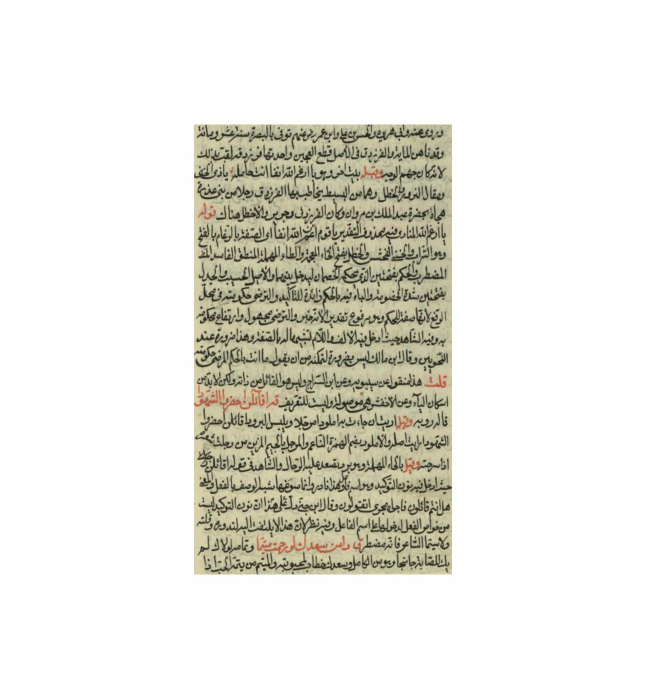 وروى عنه وابى هريرة والحسين بن على وابن عمر رضى عنهم توفى بالبصرة سنة عشر ومائة
الفرزدق فى الاصل قطع العجين واحدتها فرزدقة لقب بذلك
لانه كان جهم الوجه وقبله بيت اخر وهو يا ارغم الله انفا انت حامله يا ذى الخنى
ومقال الزور والخطل وهما من البسيط يخاطب بهما الفرزدق رجلا من بنى عذرة
هجاه بحضرة عبد الملك بن مروان وكان الفرزدق وجرير والاخطل هناك قوله
يا ارغم الله المنادى فيه محذوف التقدير يا قوم ارغم الله انفا اى الصقه بالرغام بالفتح
وهو التراب والخنى الفحش والخطل بفتح الخاء المعجمة والطاء المهملة المنطق الفاسد
المضطرب والحكم بفتحتين الذى يحكمه الخصمان ليدخل بينهما والاصيل الحسيب والجدل
بفتحتين شدة الخصومة والباء فيه بالحكم زائدة للتأكيد والترضى حكومته فى محل
الرفع لانها صفة للحكم
وفيه الشاهد حيث ادخل فيه الالف واللام تشبيها له بالصفة وهذا ضرورة عند
النحويين وقال ابن مالك ليس بضرورة لتمكنه من ان يقول ما انت بالحكم المرضى حكومته
قلت هذا منقول عن سيبويه وعن ابن السراج وليس هو القائل من ذاته ولكن لا بد من
اسكان الياء وعن الاخفش هى موصولة وليست للتعريف قه اقائلن احضروا الشهودا
قاله روبة وقبله اريت ان جاءت به املودا مرجلا ويلبس البرودا اقائلن احضروا
الشهودا اريت اصله والاملود بضم الهمزة الناعم والمرجل بالجيم المزين من رجلت شعره
اذا سرحته وقيل بالحاء المهملة وهو برد يصعد عليه الرحال والشاهد فى قوله اقائلن
حيث ادخل فيه نون التوكيد وهو اسم فاعل وهذا نادر وانما سوغها شبه الوصف بالفعل
هل انتم قائلون فاجراه مجرى اتقولون وقال ابن جنى
من خواص الفعل لدخولها على اسم الفاعل وفيه نظر لان هذا لا يلتفت اليه لندوره وقلته
ولا سيما الشاعر فانه مضطر ق دامن سعدك لو رحمت متيما وتمامه لولاك لم
يك للصبابة جانحا وهو من الكامل وسعدك خطاب لمحبوبته والمتيم من تيمه الحب اذا